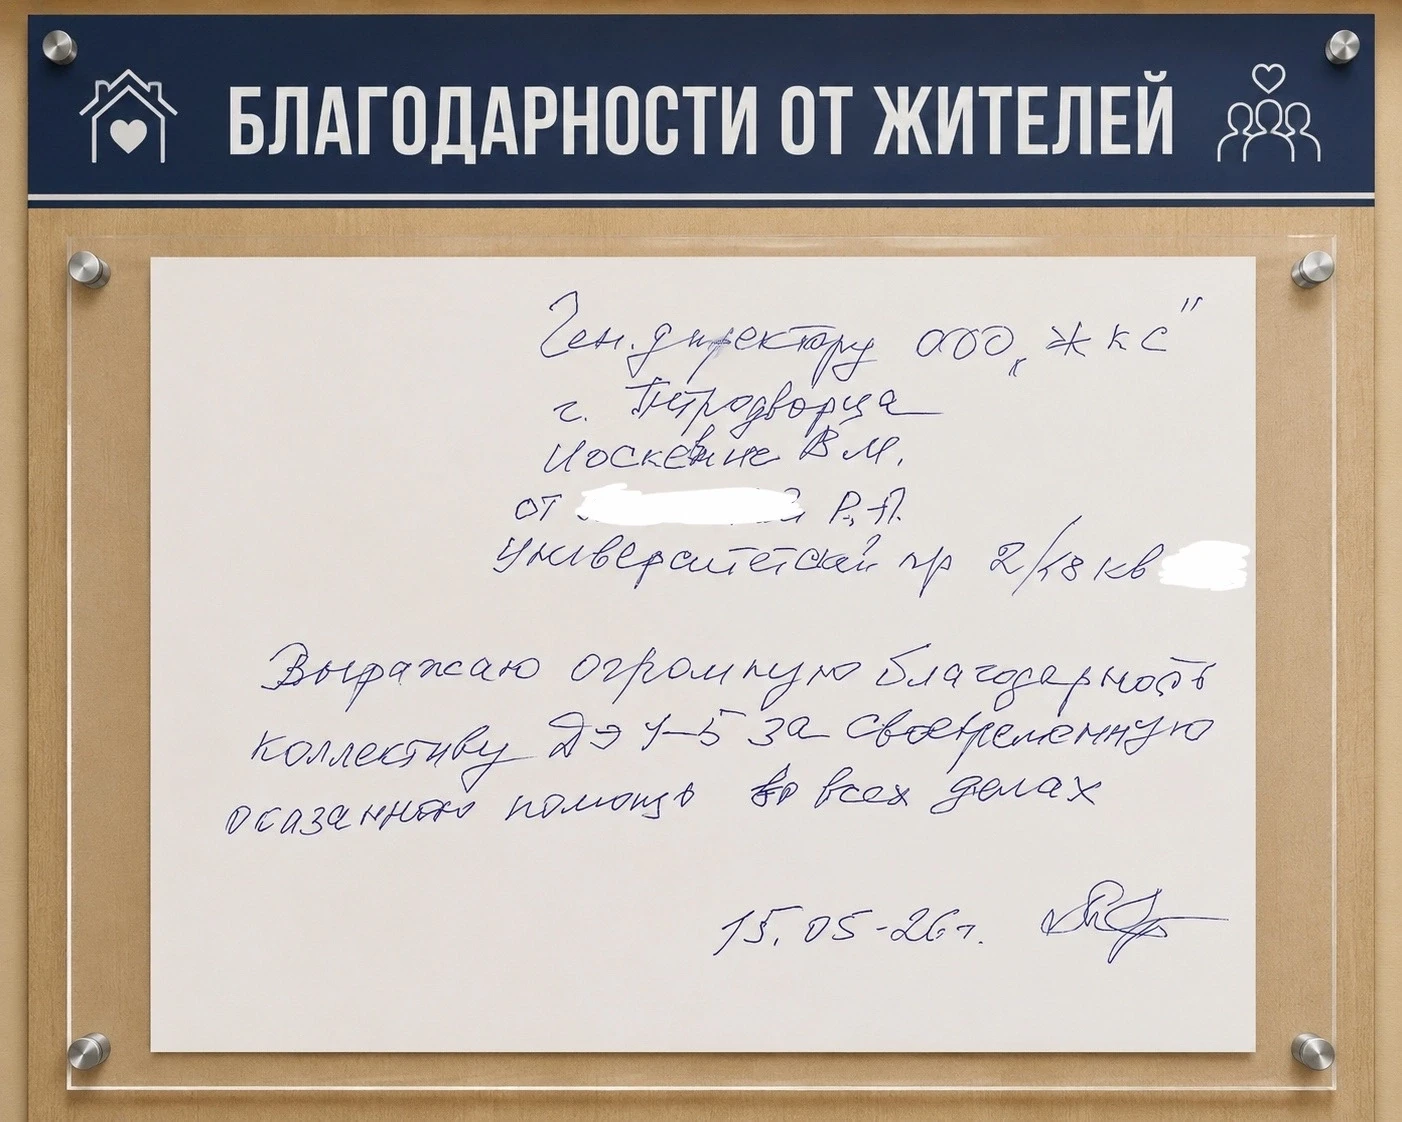 БЛАГОДАРНОСТИ ОТ ЖИТЕЛЕЙ
Ген. директору ООО „ЖКС"
г. Петродворца
В М.
от Р. А.
Университетский пр 2/18 кв
Выражаю огромную благодарность
коллективу ДЭУ-5 за своевременную
оказанную помощь во всех делах
15.05-26г.